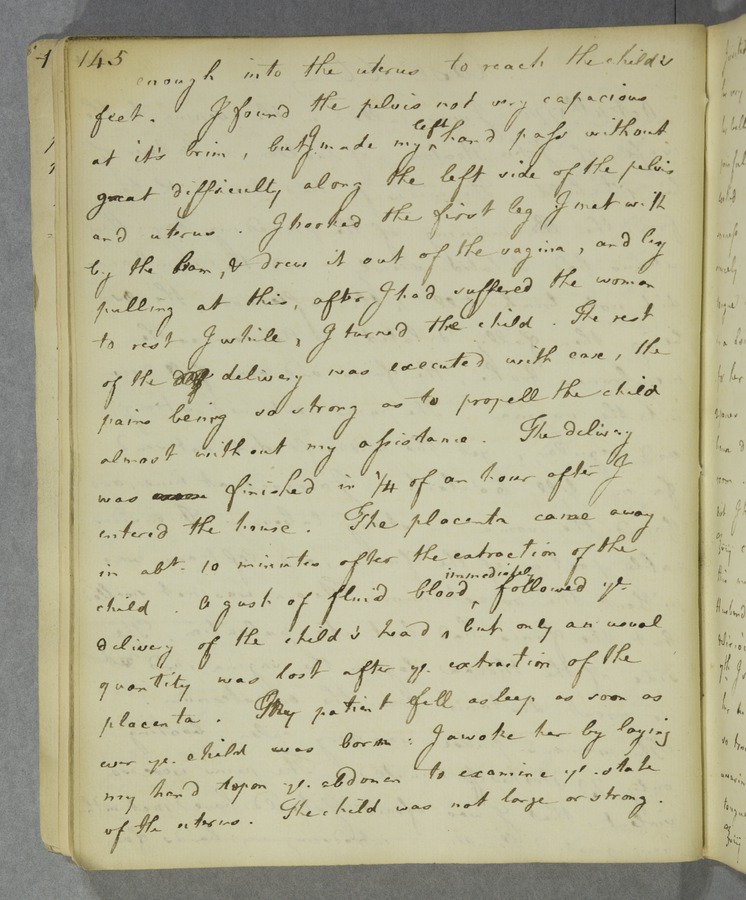 145
enough into the uterus to reach the child's
feet. I found the pelvis not very capacious
at it's brim, but I made my left hand pass without
great difficulty along the left side of the pelvis
and uterus. I hooked the first leg I met with
by the ham, & drew it out of the vagina, and by
pulling at this, after I had suffered the woman
to rest I while, I turned the child. The rest
of the delivery was executed with ease, the
pains being so strong as to propell the child
almost without my assistance. The delivery
was finished in 1/4 of an hour after I
entered the house. The placenta came away
in abt. 10 minutes after the extraction of the
child. A gush of fluid blood immediately followed ye.
delivery of the child's head, but only an usual
quantity was lost after ye. extraction of the
placenta. The patient fell asleep as soon as
ever ye. child was born: I awoke her by laying
my hand upon ye. abdomen to examine ye. state
of the uterus. The child was not large or strong.